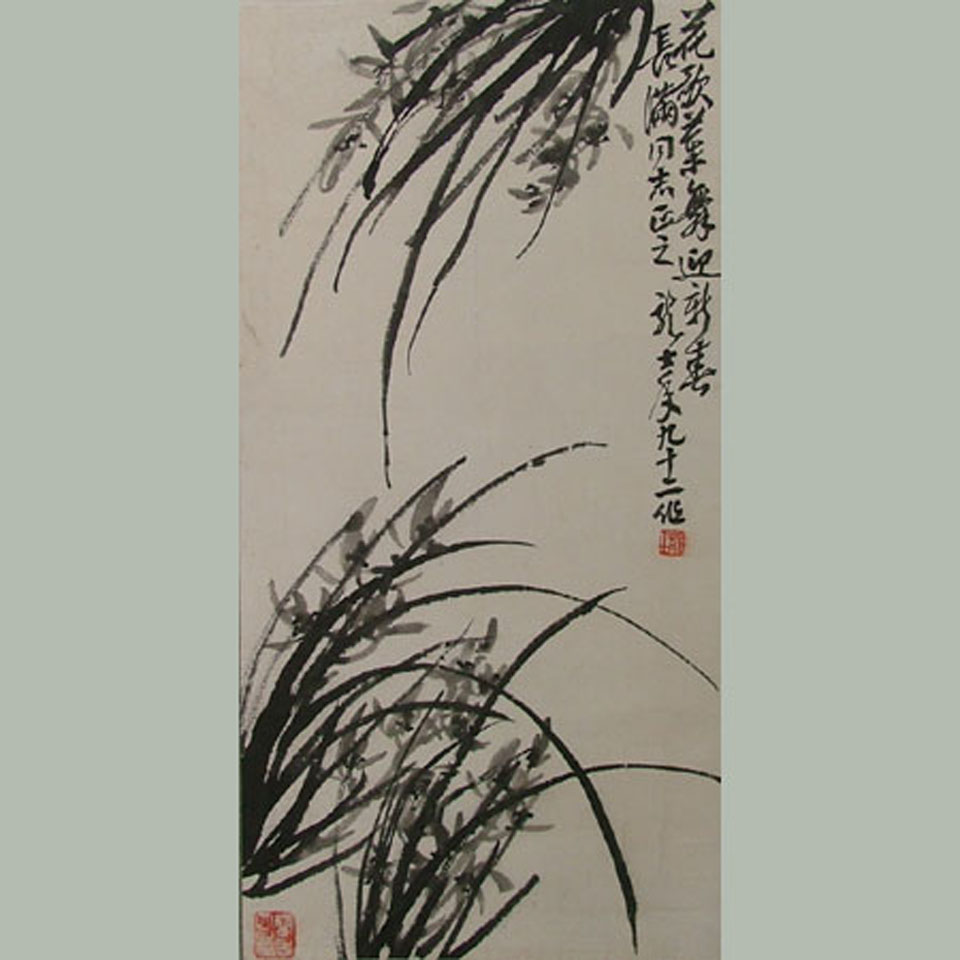 花歌葉舞迎新春
長滿同志正之 龍士年九十二作